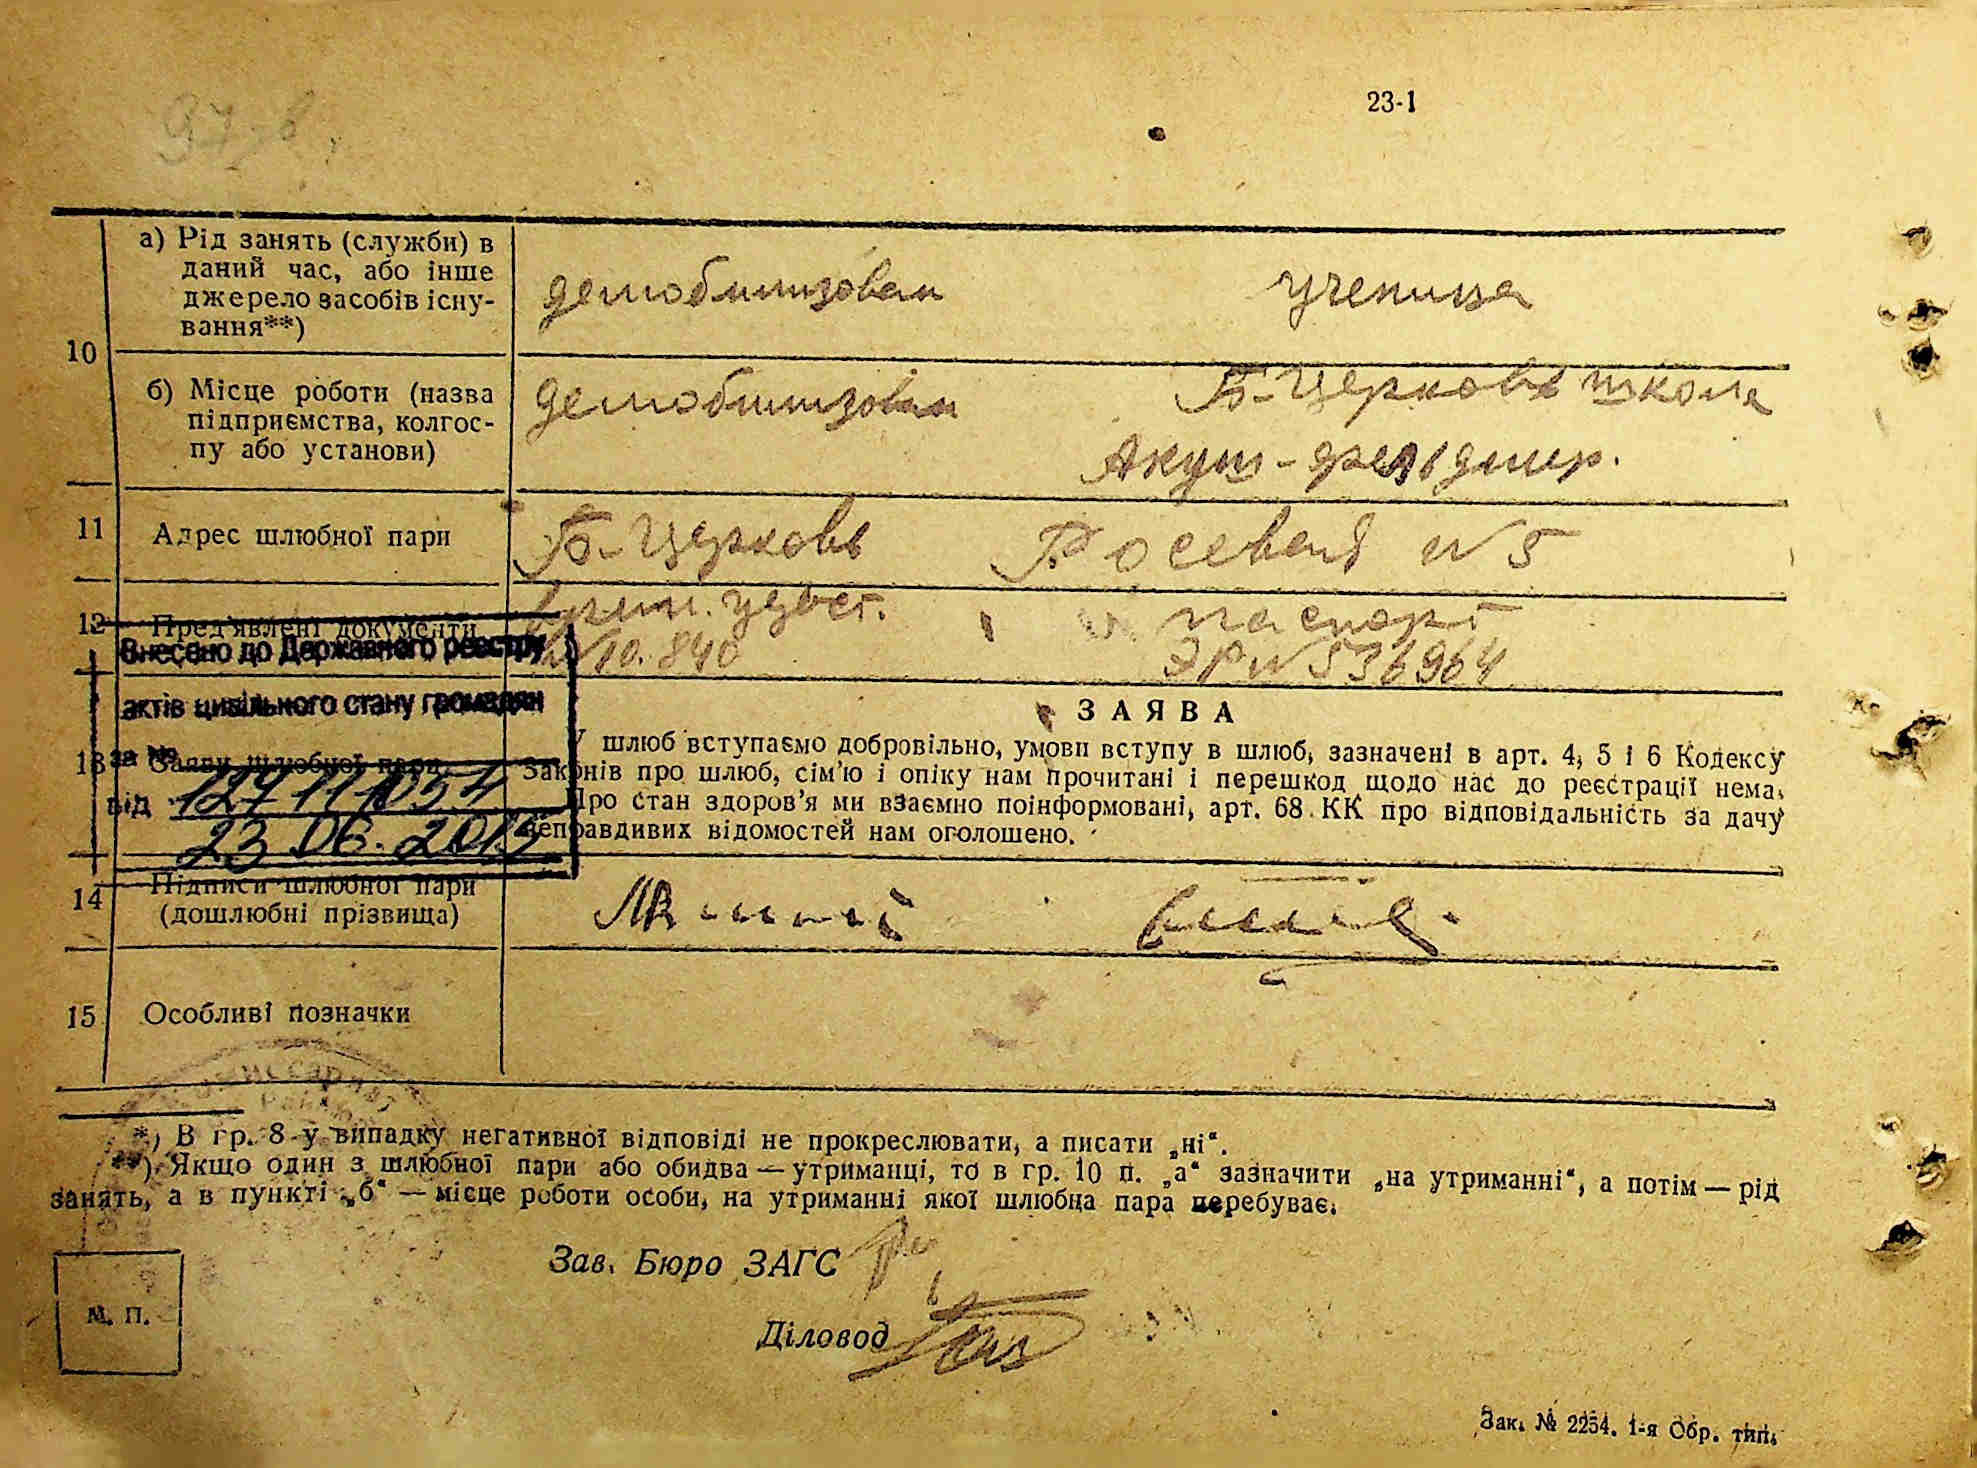 23-1
10
а) Рід занять (служби) в
даний час, або інше
джерело засобів існу-
вання**)
демобилизован
ученица
б) Місце роботи (назва
підприємства, колгос-
пу або установи)
демобилизован
Б-Церковь школа
Акуш-фельдшер.
11
Адрес шлюбної пари
Б-Церковь
№ 5
12
Пред'явлені документи
удост.
№ 10.840
паспорт
ЭР № 536964
Внесено до Державного реєстру
актів цивільного стану громадян
за №
від
23.06.2015
13
Заяви шлюбної пари
ЗАЯВА
У шлюб вступаємо добровільно, умови вступу в шлюб, зазначені в арт. 4, 5 і 6 Кодексу
Законів про шлюб, сім'ю і опіку нам прочитані і перешкод щодо нас до реєстрації нема.
Про стан здоров'я ми взаємно поінформовані, арт. 68 КК про відповідальність за дачу
неправдивих відомостей нам оголошено.
14
Підписи шлюбної пари
(дошлюбні прізвища)
15
Особливі позначки
*) В гр. 8 у випадку негативної відповіді не прокреслювати, а писати „ні“.
**) Якщо один з шлюбної пари або обидва — утриманці, то в гр. 10 п. „а“ зазначити „на утриманні“, а потім — рід
занять, а в пункті „б“ — місце роботи особи, на утриманні якої шлюбна пара перебуває.
Зав. Бюро ЗАГС
Діловод
М. П.
Зак. № 2254. 1-я Обр. тип.